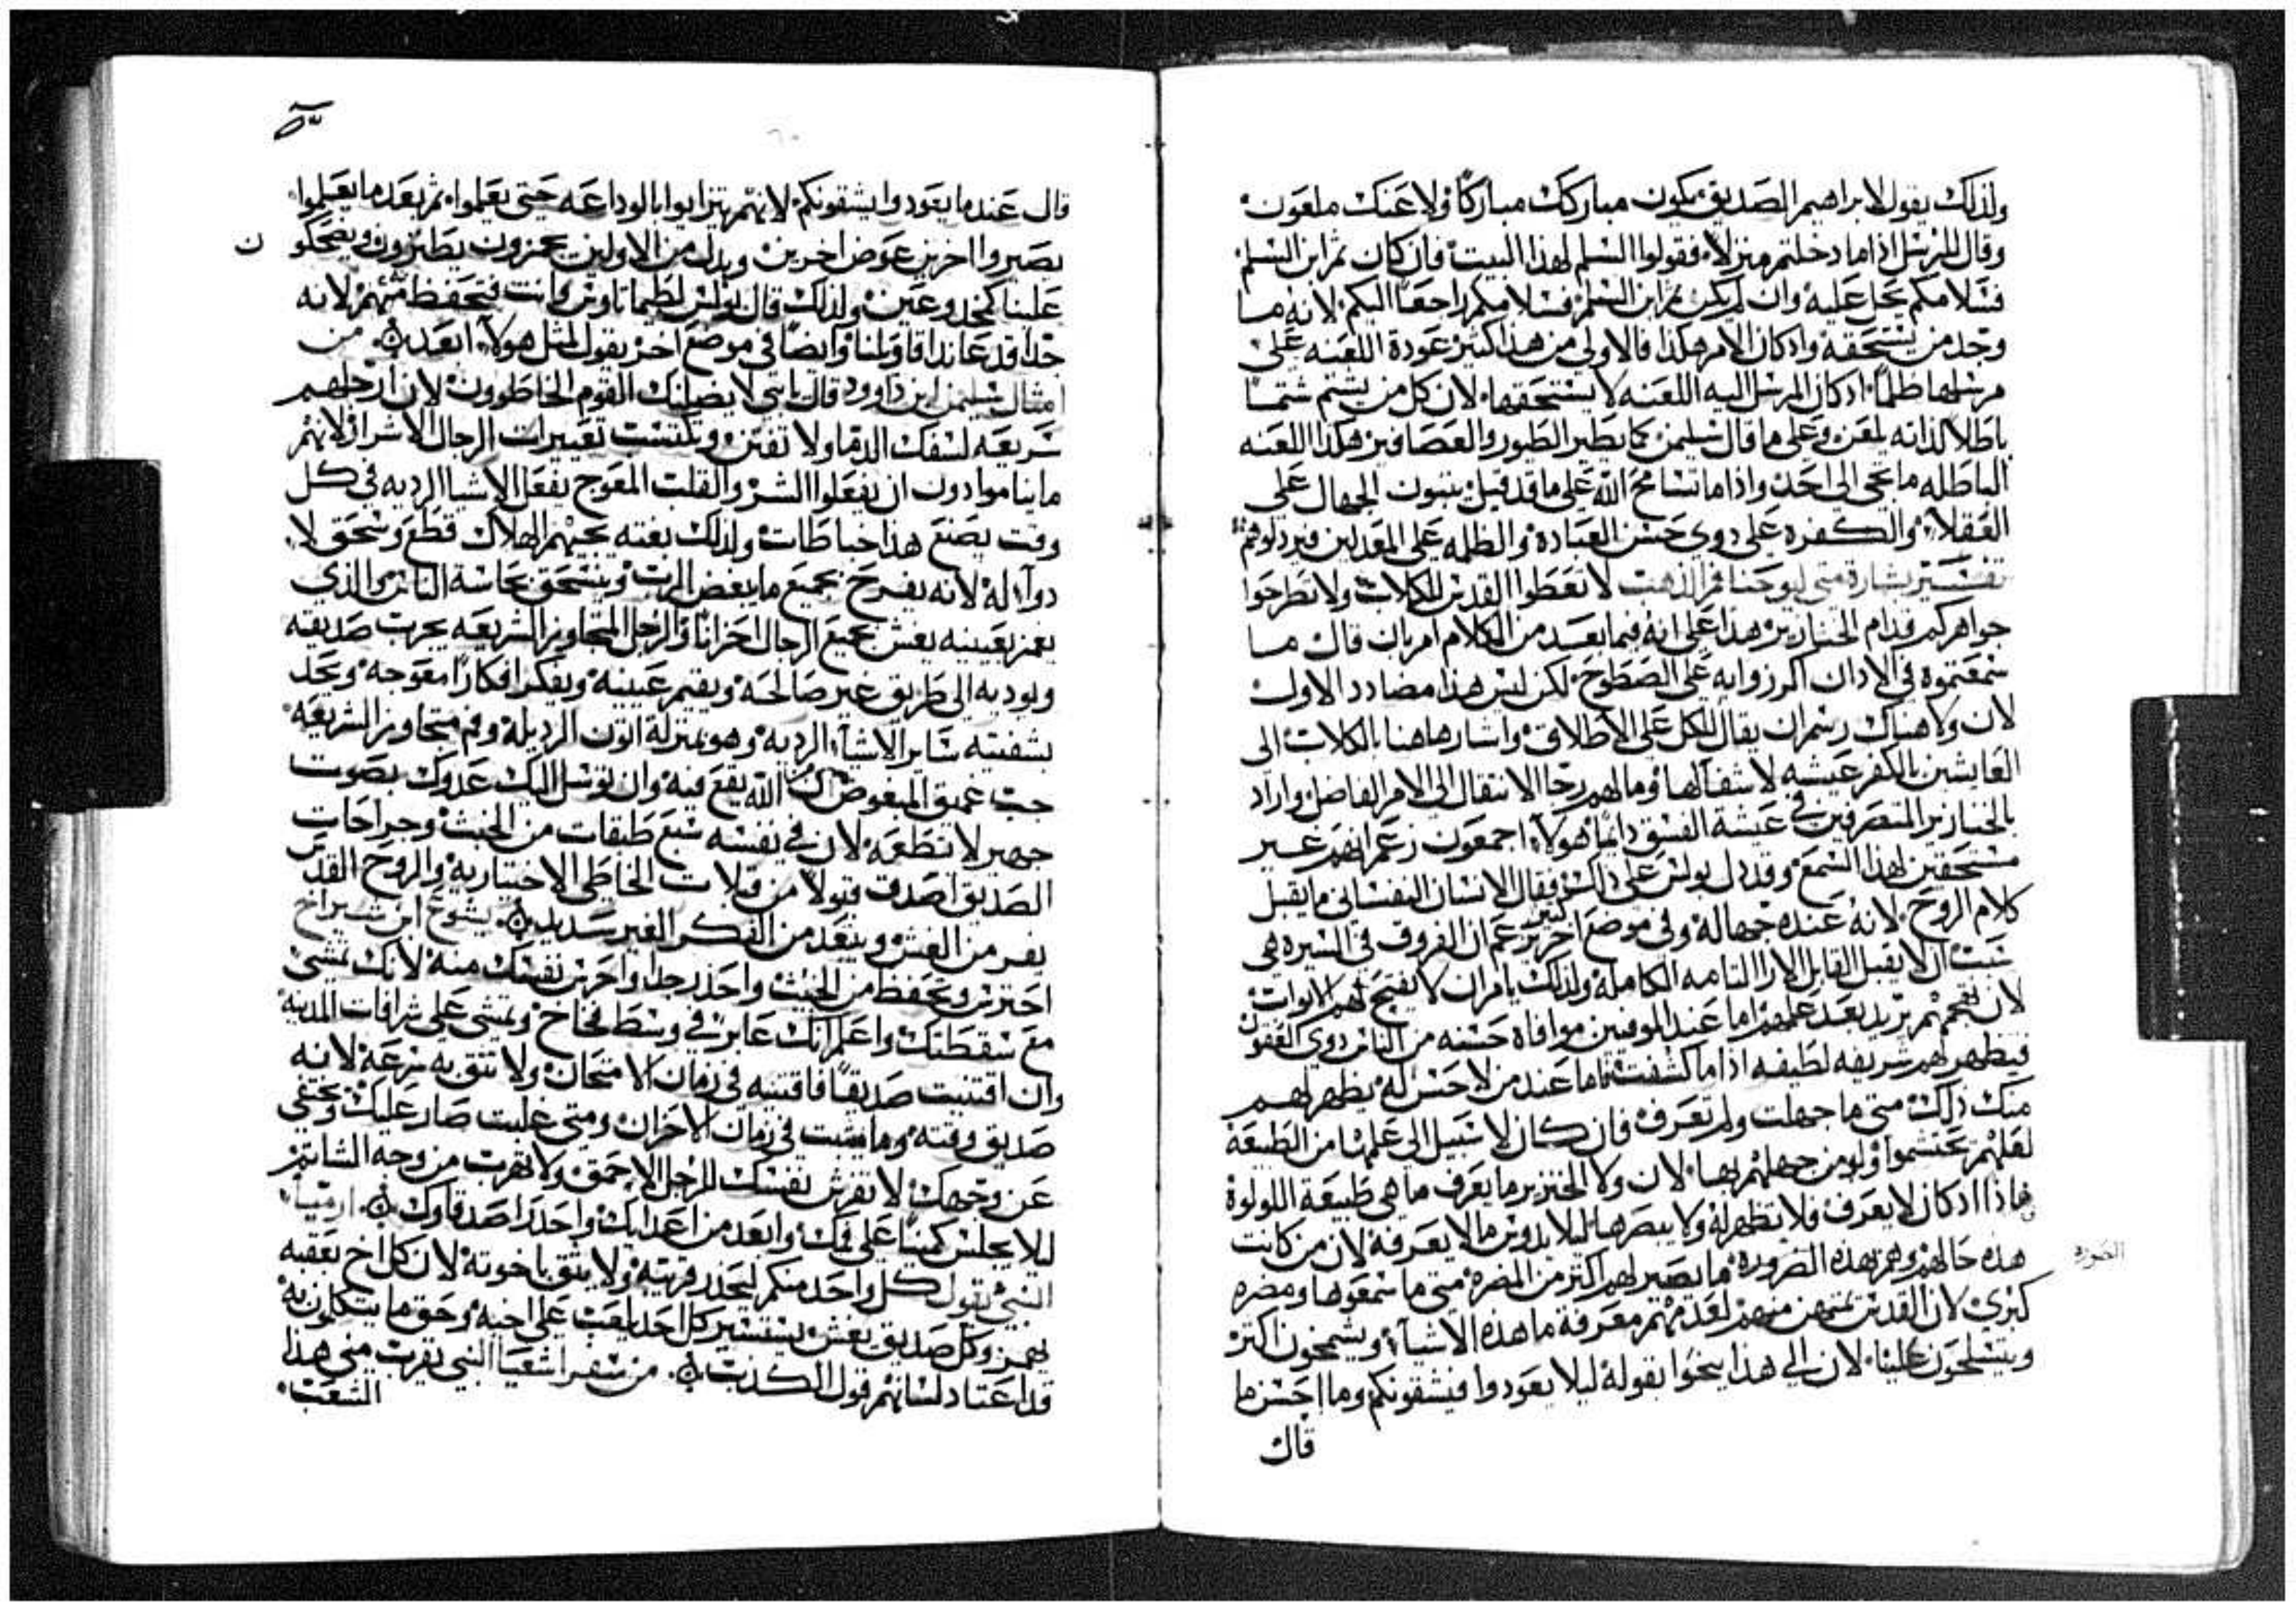 ولذلك يقول لابراهيم الصديق يكون مباركك مباركًا ولاعنك ملعون
وقال للرسل اذا ما دخلتم منزلاً فقولوا السلم لهذا البيت فان كان ثم ابن السلم
فسلامكم يحل عليه وان لم يكن ثم ابن السلم فسلامكم راجعًا اليكم لانه ما
وجد من يستحقه واذ كان الامر هكذا فالاولى من هذا كثير عودة اللعنه على
مرسلها ظلمًا اذ كان المرسل اليه اللعنه لا يستحقها لان كل من يشتم شتمًا
باطلاً لذاته يلعن وعلى ما قال سليمن كما يطير الطيور والعصافير هكذا اللعنه
الباطله ما تجي الى احد واذا ما تسامح الله على ما قد قيل يثبون الجهال على
العقلاء والكفره على ذوى حسن العباده والظلمه على المعدلين فيرذلوهم
تفسير بشارة متى ليوحنا فم الذهب لا تعطوا القدس للكلاب ولا تطرحوا
جواهركم قدام الخنازير هذا على انه فيما بعد من الكلام امر بان قال ما
سمعتموه في الاذان اكرزوا به على السطوح لكن ليس هذا مضادد الاول
لان ولا هناك رسم ان يقال للكل على الاطلاق واشار هاهنا بالكلاب الى
العايشين بالكفر عيشه لا شفا لها وما لهم رجا الانتقال الى الامر الفاضل واراد
بالخنازير المتصرفين في عيشة الفسق دايمًا هولاء اجمعون زعم انهم غير
مستحقين لهذا السمع وقد دل بولس على ذلك فقال الانسان النفسانى ما يقبل
كلام الروح لانه عنده جهاله وفي موضع اخر يزعم ان الفروق في السيره هي
سبب ان لا يقبل القابل الارا التامه الكامله ولذلك يامر ان لا يفتح لهم الابواب
لان تقحمهم يزيد بعد علمهم اما عند الموفنين موافاه حسنه من الناس ذوى العقول
فيظهر لهم شريفه لطيفه اذا ما كشفت واما عند من لا حس له يظهر لهم
منك ذلك متى ما جهلت ولم تعرف فان كان لا سبيل الى علمها من الطبيعة
لعلهم يحتشموا ولو من جهلهم بها لان ولا الخنزير ما يعرف ما هي طبيعة اللولوة
فاذا اذ كان لا يعرف فلا تظهر له ولا يبصرها ليلا يدوس ما لا يعرفه لان من كانت
هذه حالهم وهم بهذه الضروره ما يصير لهم اكثر من المضره متى ما سمعوها ومضره
كبرى لان القدس يمتهن منهم لعدمهم معرفة ما هذه الاشياء ويشمخون اكثر
ويتسلحون علينا لان الى هذا ينحوا بقوله ليلا يعودوا فيشقونكم وما احسن ما
قال
الضوره
قال عند ما يعودوا يشقونكم لانهم يتزايوا بالوداعه حتى يعلموا ثم بعد ما يعلموا
يصيروا اخرين عوض اخرين وبدل من الاولين يهمزون يطنزون ويضحكو ن
علينا كمخدوعين ولذلك قال بولس لطيماتاوس وانت فتحفظ منهم لانه
جدا قد عاند اقاويلنا وايضًا في موضع اخر يقول لمثل هولاء ابعد من
امثال سليمن ابن داوود قال يا بني لا يضلنك القوم الخاطوون لان ارجلهم
سريعه لسفك الدما ولا تفتن وتكتسب تعييرات الرجال الاشرار لانهم
ما يناموا دون ان يفعلوا الشر والقلب المعوج يفعل الاشيا الرديه في كل
وقت يصنع هذا خباطات ولذلك بغته يجيهم الهلاك قطع وسحق لا
دواء له لانه يفرح بجميع ما يبغض الرب وينسحق بنجاسة الناس والذي
يغمز بعينيه يغش بجميع الرجال احزانًا والرجل المتجاوز الشريعه يجرب صديقه
ويوديه الى طريق غير صالحه ويقيم عينيه ويفكر افكارًا معوجه ويحد
بشفتيه ساير الاشياء الرديه وهو بمنزلة اتون الرذيله وفم متجاوز الشريعه
جب عميق المبغوض من الله يقع فيه وان توسل اليك عدوك بصوت
جهير لا تطعه لان في نفسه سبع طبقات من الخبث وجراحات
الصديق اصدق قبولاً من قبلات الخاطى الاختياريه والروح القدس
يفر من الغش ويبعد من الفكر الغير سديد يشوع ابن شيراخ
احترس وتحفظ من الخبث واحذر جدا واحرس نفسك منه لانك تمشى
مع سقطتك واعلم انك عابر في وسط فخاخ وتمشى على شرافات المدينه
وان اقتنيت صديقًا فاقتنيه في زمان الامتحان ولا تثق به سرعه لانه
صديق وقته وما يثبت في زمان الاحزان ومتى غلبت صار عليك ويختفى
عن وجهك لا تفرش نفسك للرجل الاحمق ولا تهرب من وجه الشاتم
ليلا يجلس كمينًا على فمك وابعد من اعدايك واحذر اصدقاوك ارميا
النبي يقول كل واحد منكم ليحذر قريبه ولا يثق باخوته لان كل اخ بعقبه
يهمز وكل صديق بغش يستسير كل احد يلعب على اخيه وحق ما يتكلون به
قد اعتاد لسانهم قول الكذب من سفر اشعيا النبي يقرب مني هذا
الشعب